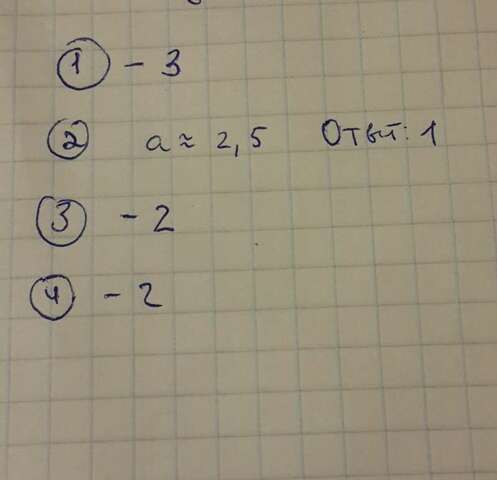 ① - 3
② a ≈ 2,5 Ответ: 1
③ - 2
④ - 2